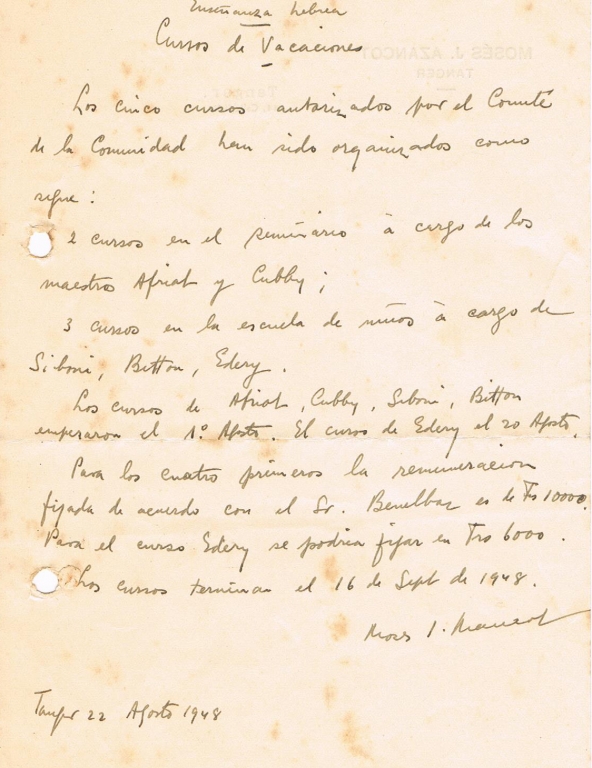 Enseñanza hebrea
Cursos de Vacaciones
MOSÉS J. AZANCOT
TANGER
Los cinco cursos autorizados por el Comité
de la Comunidad han sido organizados como
sigue :
2 cursos en el seminário à cargo de los
maestros Afriat y Cubby ;
3 cursos en la escuela de niños à cargo de
Siboni, Bitton, Edery .
Los cursos de Afriat, Cubby, Siboni, Bitton
emperaron el 1º Agosto. El curso de Edery el 20 Agosto.
Para los cuatro primeros la remuneracion
fijada de acuerdo con el Sr. Benelbaz es de Frs 10000.
Para el curso Edery se podria fijar en Frs 6000 .
Los cursos terminan el 16 de Sept de 1948.
Moses J. Azancot
Tanger 22 Agosto 1948